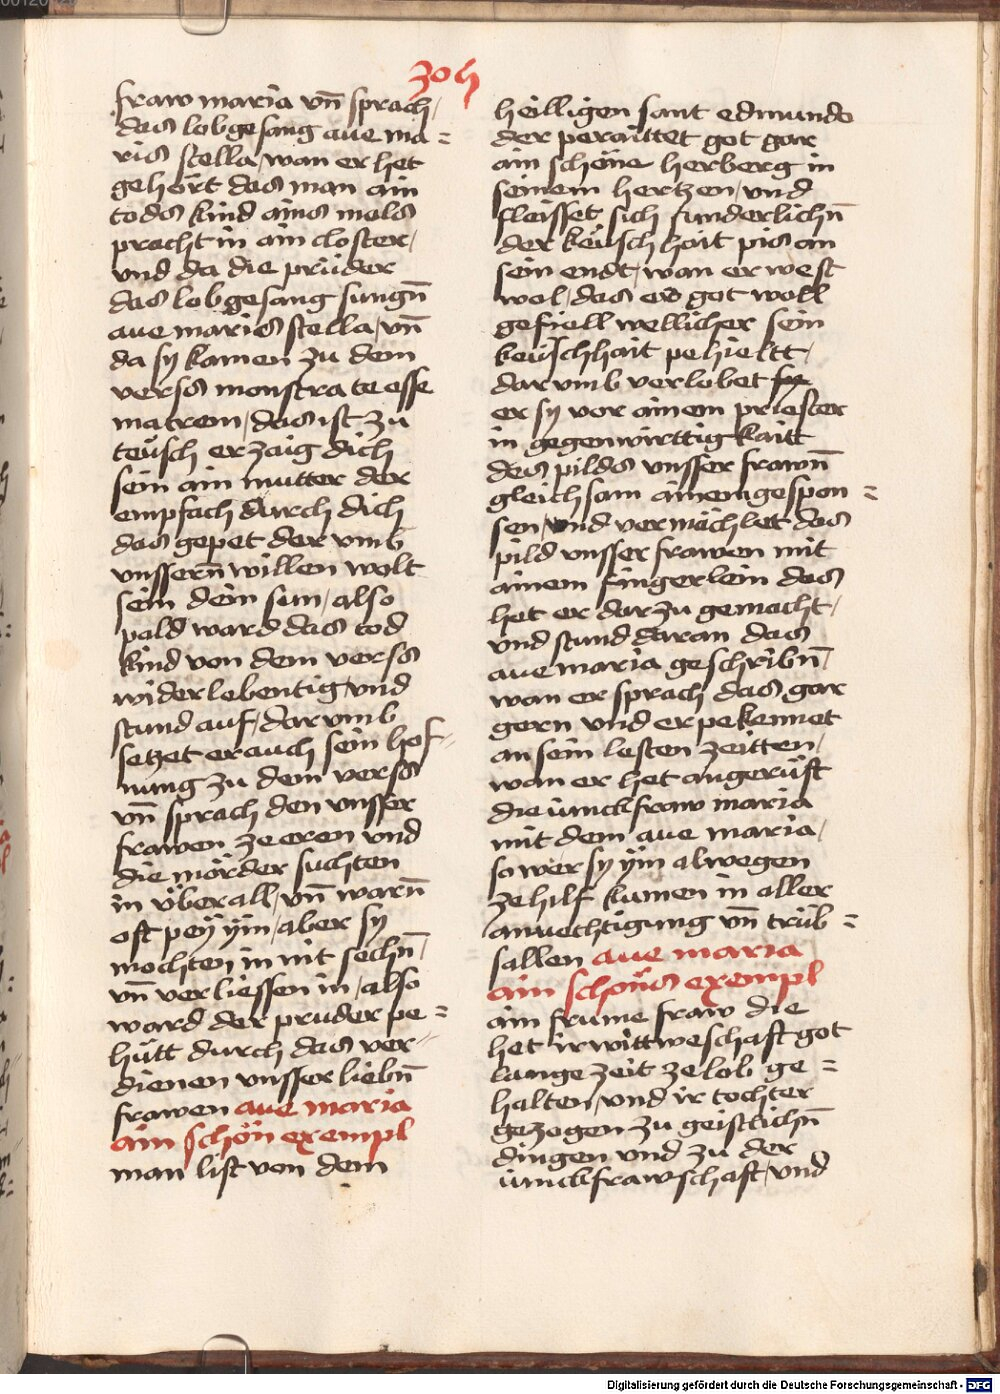 304
fraw maria vn̄ sprach /
das lobgesang aue ma =
ris stella / wan er het
gehört das man ain
todes kind ains mals
pracht in ain closter /
vnd da die prüder
das lobgesang sungn̄
aue maris stella / vn̄
da sy kamen zu dem
verss monstra te esse
matrem / das ist zu
teüsch erzaig dich
sein ain mutter der
empfach durch dich
das gepet der vmb
vnssern̄ willen wolt
sein dein sun / also
pald ward das tod
kind von dem verss
wider lebentig vnd
stund auf / dar vmb
setzet er auch sein hof =
nung zu dem verss
vn̄ sprach den vnsser
frawen ze eren vnd
die mörder suchten
in überall / vn̄ warn̄
oft peÿ ÿm / aber sy
mochten in nit sechn̄ /
vn̄ verliessen in / also
ward der pruder pe =
hütt durch das ver =
dienen vnsser liebn̄
frawen aue maria
ain schön exempl
man list von dem
heilligen sant edmundo
der peraittet got gar
ain schöne herberg in
seinem hertzen / vnd
fleisset sich sunderlichn̄
der keüschhait pis an
sein endt / wan er west
wol / das es got woll
gefiell wellicher sein
keüschhait pehieltt /
dar vmb verlobet sy
er sy vor ainem priester
in gegenwirttigkaitt
des pilds vnsser frawn̄
gleich sam ainem gespon =
sen / vnd vermächlet das
pild vnsser frawen mit
ainem fingerlein das
het er dar zu gemacht /
vnd stund daran das
aue maria geschribn̄ /
wan er sprach das gar
gern vnd er pekennet
an sein lesten zeitten /
wan er het angerüft
die iunckfraw maria
mit dem aue maria /
so wer sy ÿm alwegen
ze hilf kumen in aller
anuechtigung vn̄ trüb =
sallen aue maria
ain schöns exempl
ain frume fraw die
het ir wittweschaft got
lange zeit ze lob ge =
halten / vnd ir tochter
gezogen zu geistlichn̄
dingen vnd zu der
iunckfrawschaft / vnd
Digitalisierung gefördert durch die Deutsche Forschungsgemeinschaft - DFG